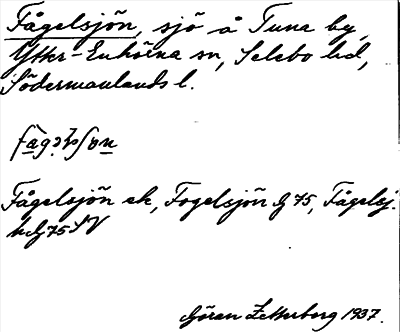 Fågelsjön, sjö å Tuna by,
Ytter-Enhörna sn, Selebo hd,
Södermanlands l.
Fågelsjön ek, Fogelsjön G 75, Fågelsj.
h G 75 SV
Göran Zetterberg 1937.